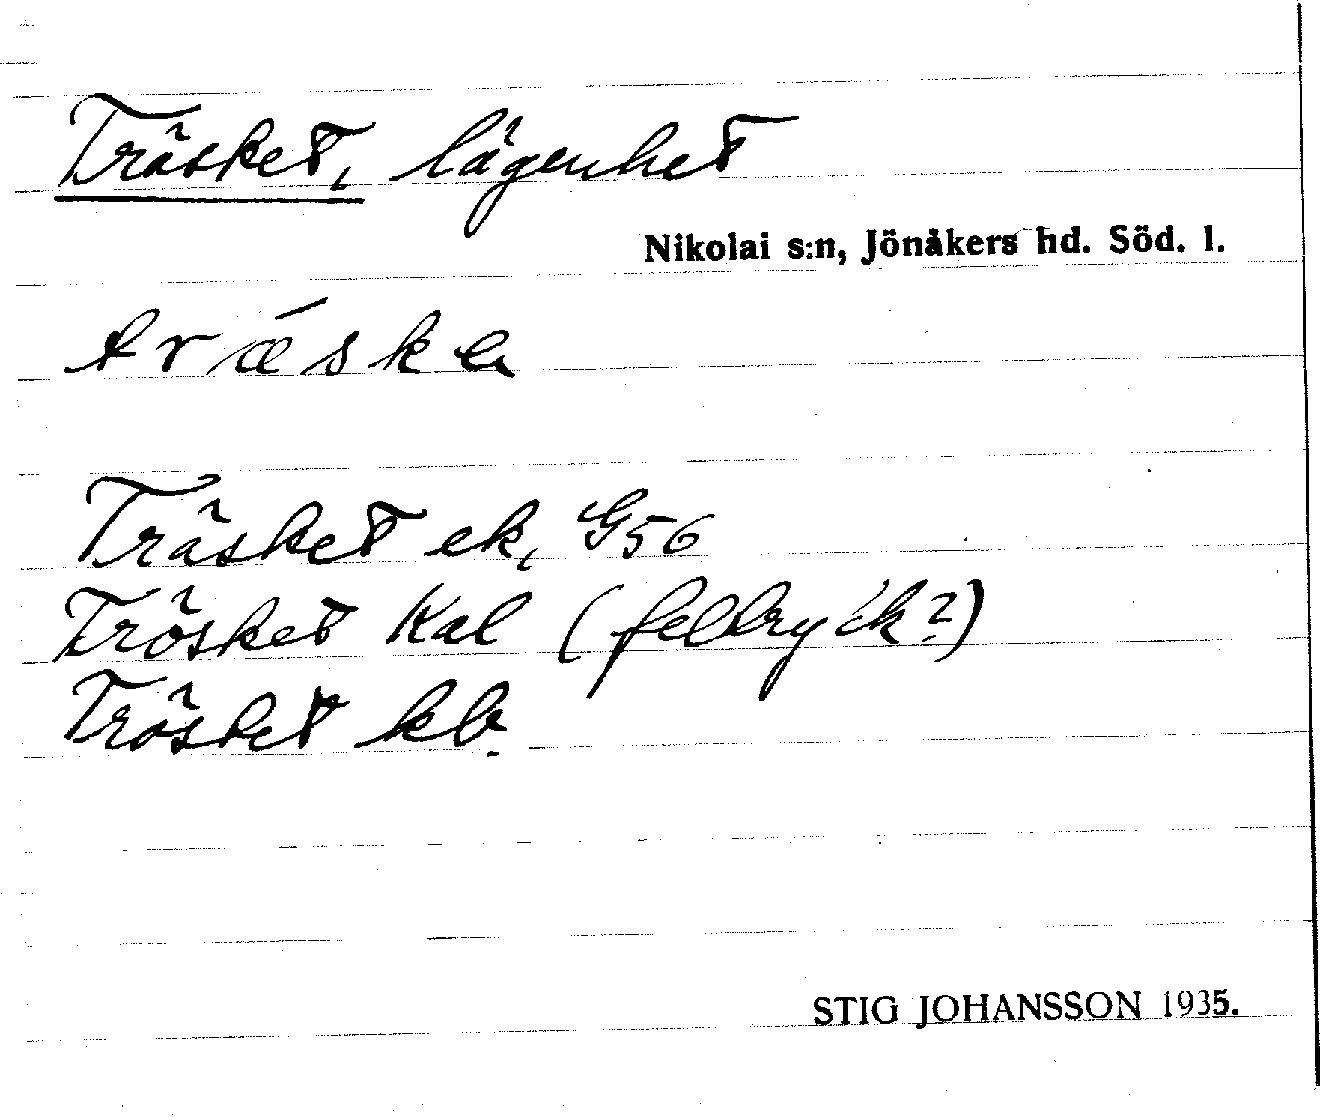 Träsket, lägenhet
Nikolai s:n, Jönåkers hd. Söd. l.
træ´ska
Träsket ek, G56
Trösket Kal (feltryck?)
Träsket kb.
STIG JOHANSSON 1935.